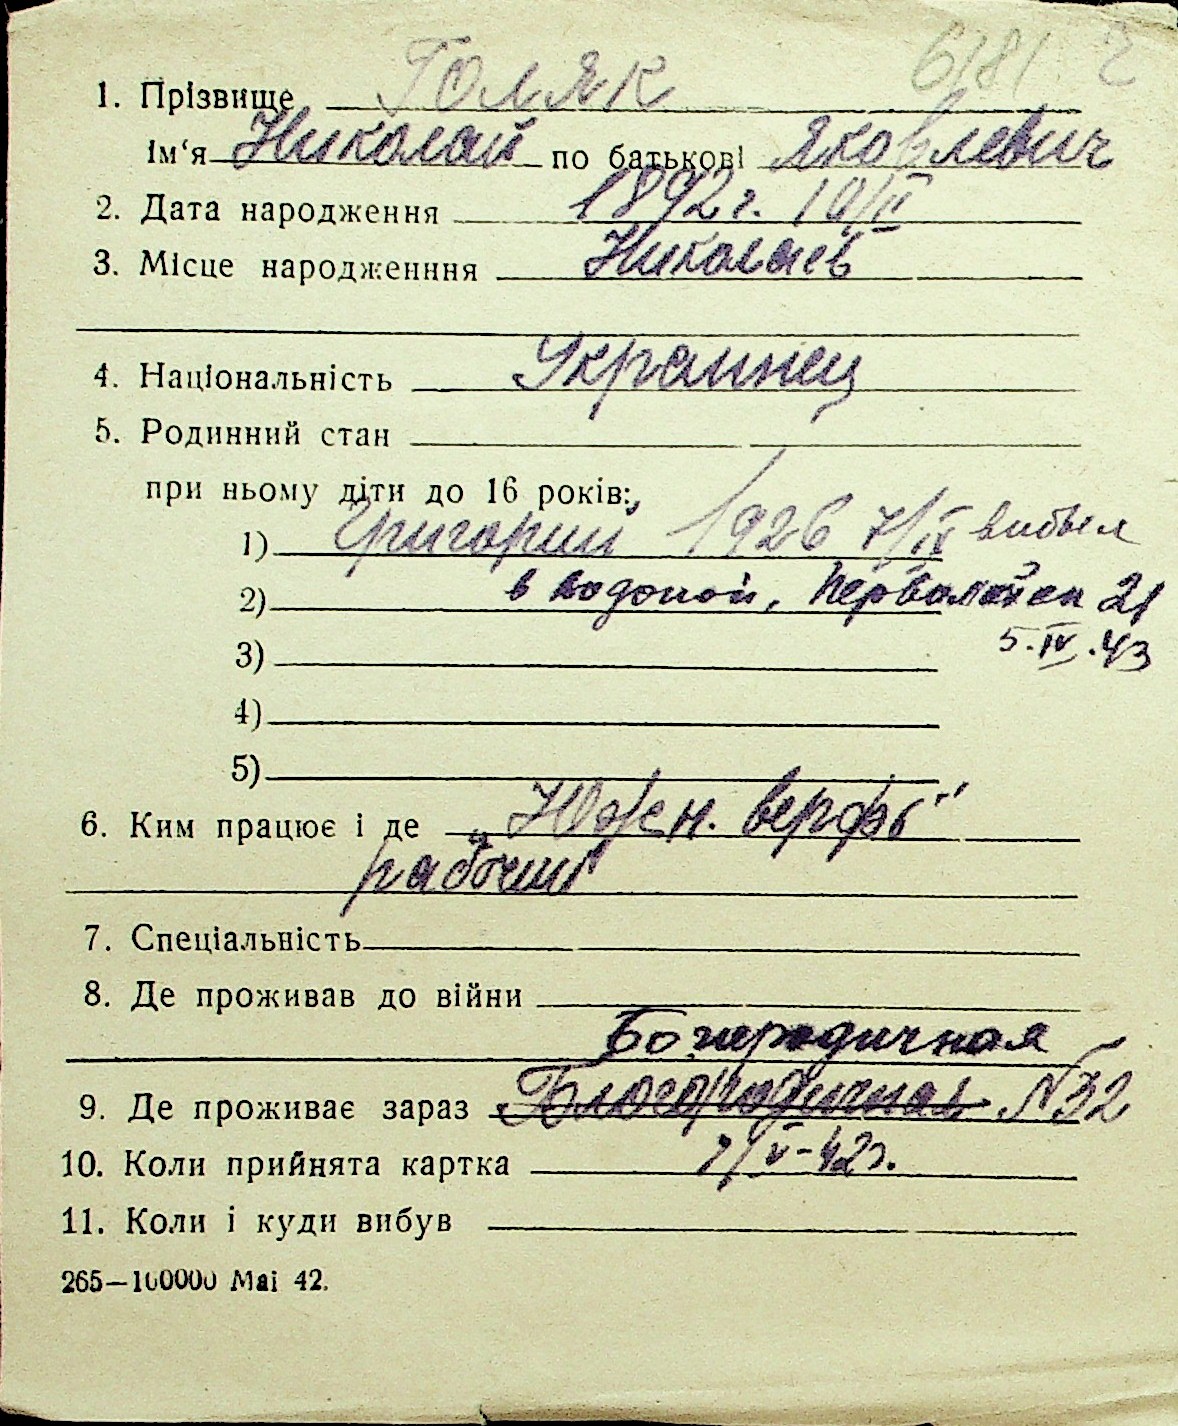 6181 2
1. Прізвище Голяк
Ім'я Николай по батькові Яковлевич
2. Дата народження 1892 г. 10/II
3. Місце народженння Николаев
4. Національність Украинец
5. Родинний стан
при ньому діти до 16 років:
1) Григорий 1926 7/IX выбыл
2) в Водопой, 21
3) 5.IV.43
4)
5)
6. Ким працює і де „Южн. верфь"
рабочий
7. Спеціальність
8. Де проживав до війни
Богородичная
9. Де проживає зараз Благородичная N32
10. Коли прийнята картка 7/V-42г.
11. Коли і куди вибув
265—100000 Mai 42.